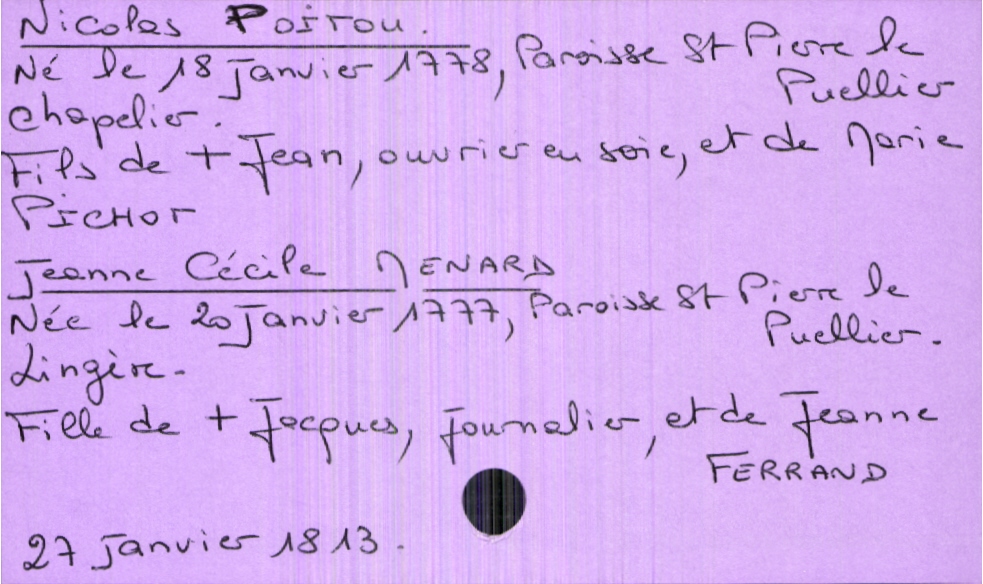 Nicolas POITOU.
Né le 18 Janvier 1778, Paroisse St Pierre le
Puellier
chapelier.
Fils de + Jean, ouvrier en soie, et de Marie
PICHOT
Jeanne Cécile MENARD
Née le 20 Janvier 1777, Paroisse St Pierre le
Puellier.
Lingère.
Fille de + Jacques, Journalier, et de Jeanne
FERRAND
27 Janvier 1813.